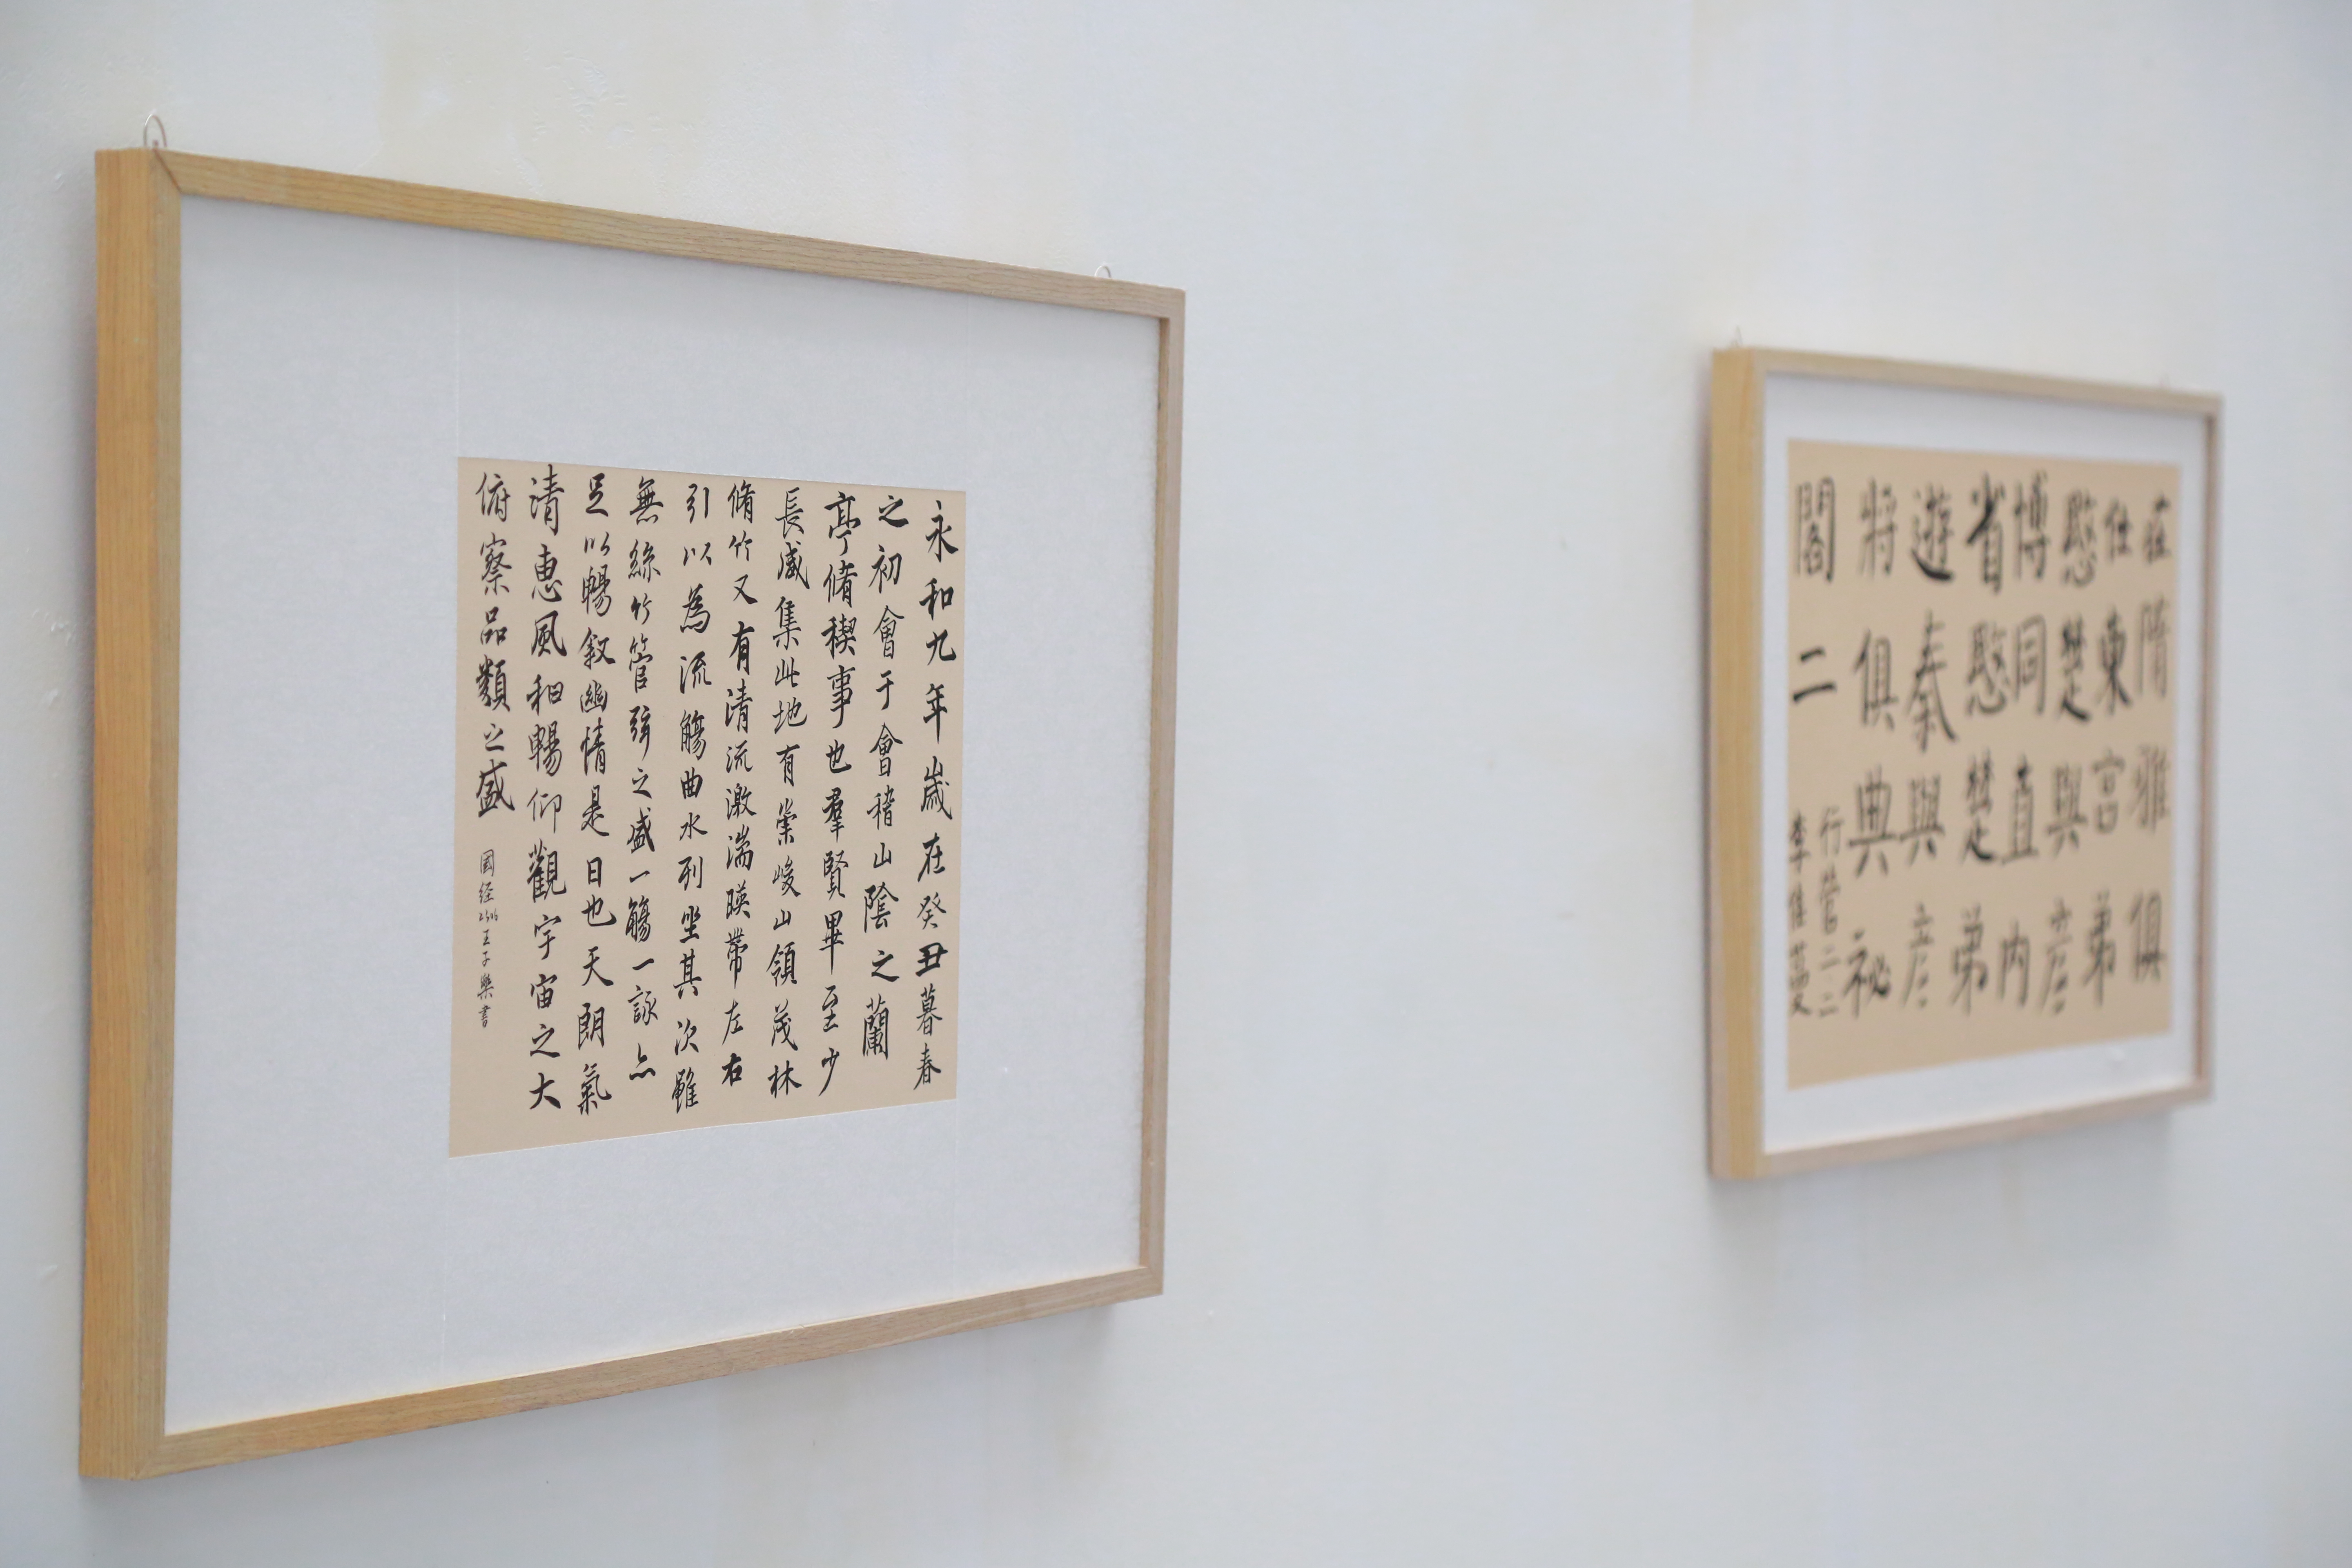 永和九年歲在癸丑暮春
之初會于會稽山陰之蘭
亭脩稧事也羣賢畢至少
長咸集此地有崇峻山領茂林
脩竹又有清流激湍暎帶左右
引以為流觴曲水列坐其次雖
無絲竹管弦之盛一觴一詠亦
足以暢敘幽情是日也天朗氣
清惠風和暢仰觀宇宙之大
俯察品類之盛
国经2306王子樂書
在隋雅俱
仕東宮弟
愍楚與彦
博同直内
省愍楚弟
遊秦與彦
將俱典祕
閣二
行管二二
李佳蔓